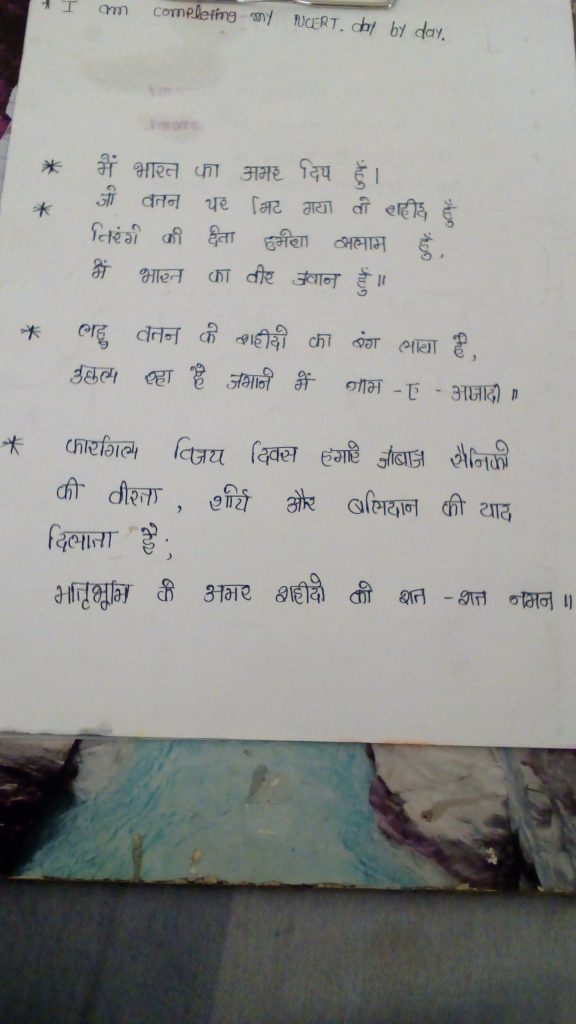 * I am completing my NCERT. day by day.
* में भारत का अमर दिप हूँ।
* जो वतन पर मिट गया वो शहीद हूँ
तिरंगे को देता हमेशा सलाम हूँ,
में भारत का वीर जवान हूँ॥
* लहू वतन के शहीदो का रंग लाया है,
उछल रहा है जमाने में नाम - ए - आजादी॥
* कारगिल विजय दिवस हमारे जांबाज सैनिको
की वीरता, शौर्य और बलिदान की याद
दिलाता है;
मातृभूमि के अमर शहीदो को शत - शत नमन॥